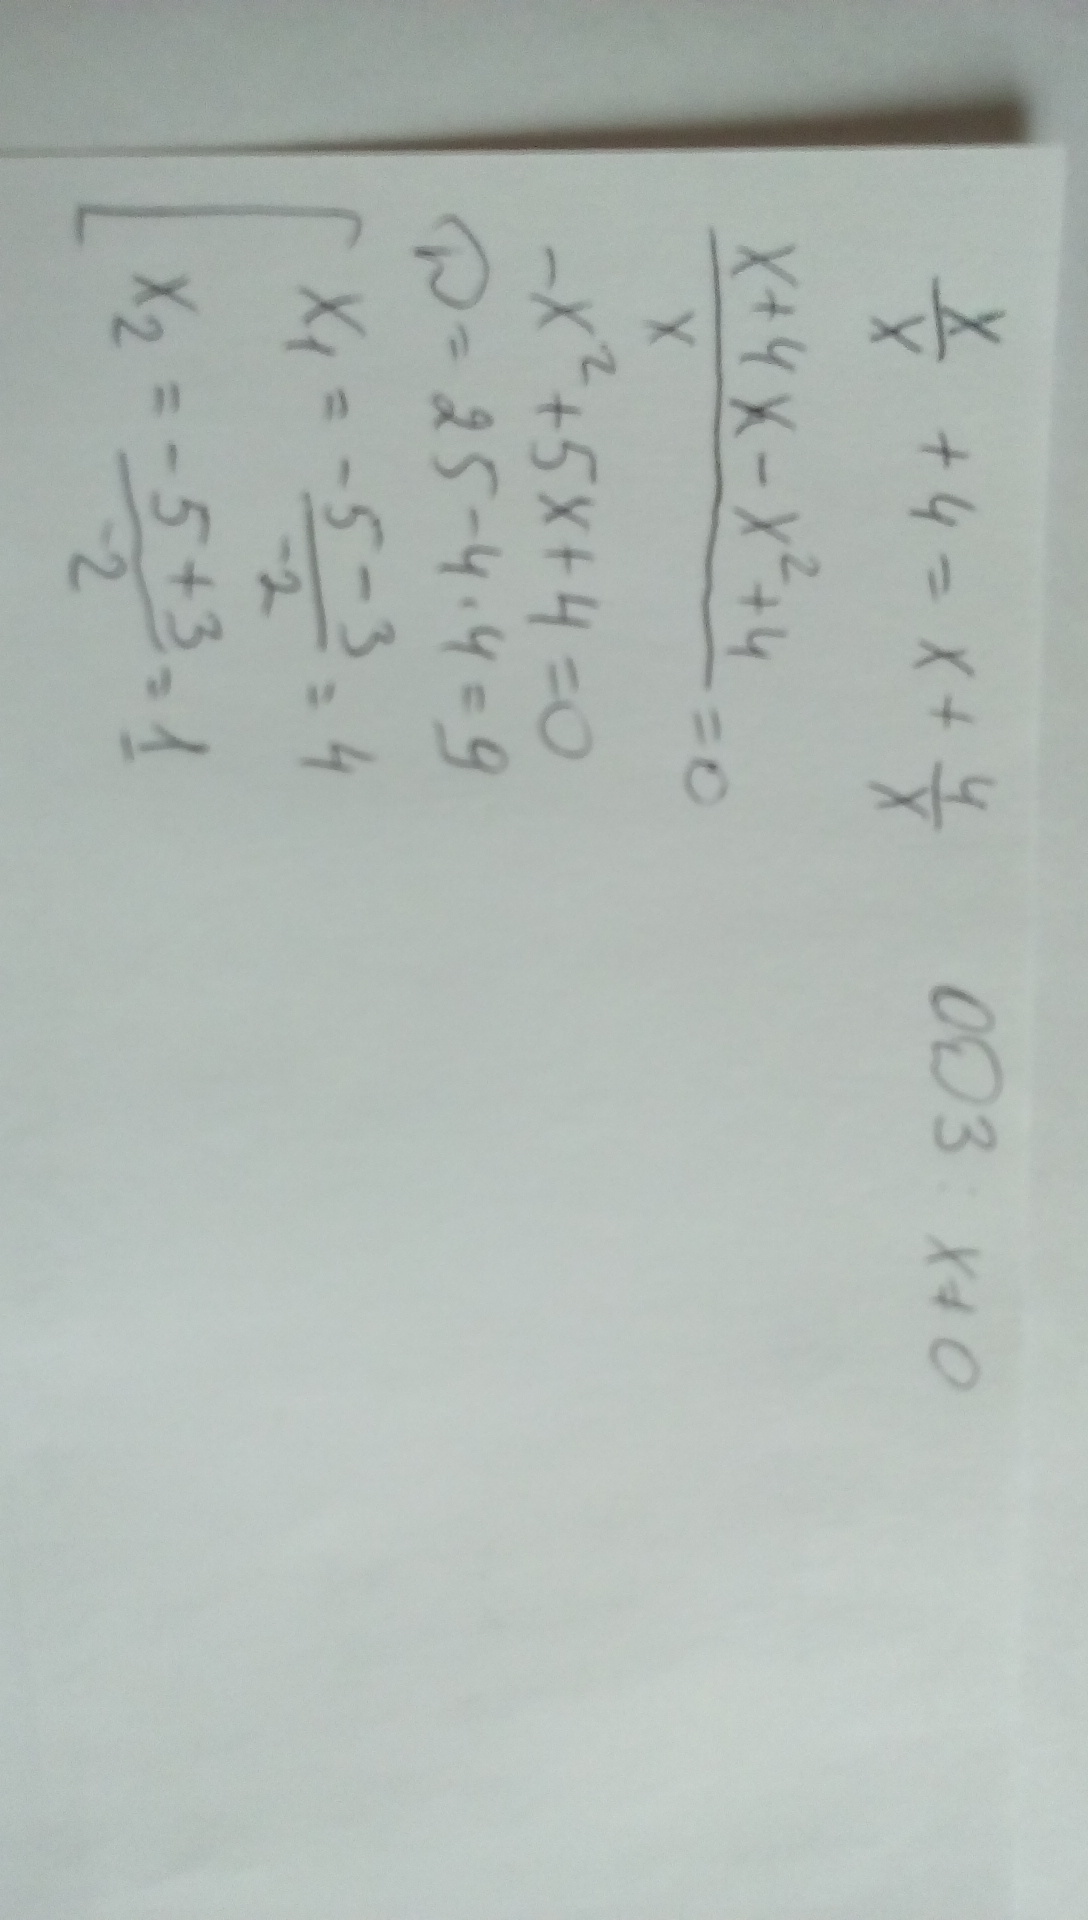 x/x + 4 = x + 4/x ОДЗ: x ≠ 0
(x + 4x - x² + 4)/x = 0
-x² + 5x + 4 = 0
D = 25 - 4·4 = 9
x₁ = (-5 - 3)/-2 = 4
x₂ = (-5 + 3)/-2 = 1